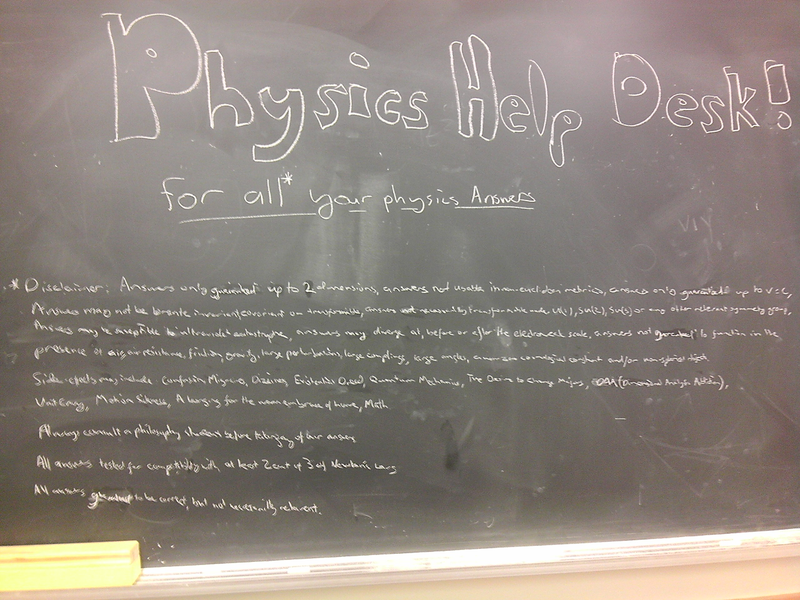 Physics Help Desk!
for all* your physics Answers
VIY
* Disclaimer: Answers only up to 2 dimensions, answers not usable in non-euclidean metrics, answers only up to v=c,
Answers may not be lorentz invariant/covariant on transformable under U(1), SU(2), SU(3) or any other relevant symmetry group,
Answers may be susceptible to ultraviolet catastrophe, answers may diverge at, before or after the electroweak scale, answers not to function in the
presence of air resistance, friction, gravity, large perturbations, large couplings, large angles, cosmological constant and/or
Side effects may include: Confusion, Migraine, Dizziness, Existential Dread, Quantum Mechanics, The Desire to Change Majors, (Dimensional Analysis Addiction),
Motion Sickness, A longing for the warm embrace of home, Math
Always consult a philosophy before our answer
All answers tested for compatibility with at least 2 out of 3 of Newton's Laws
All answers to be correct, but not necessarily relevant.